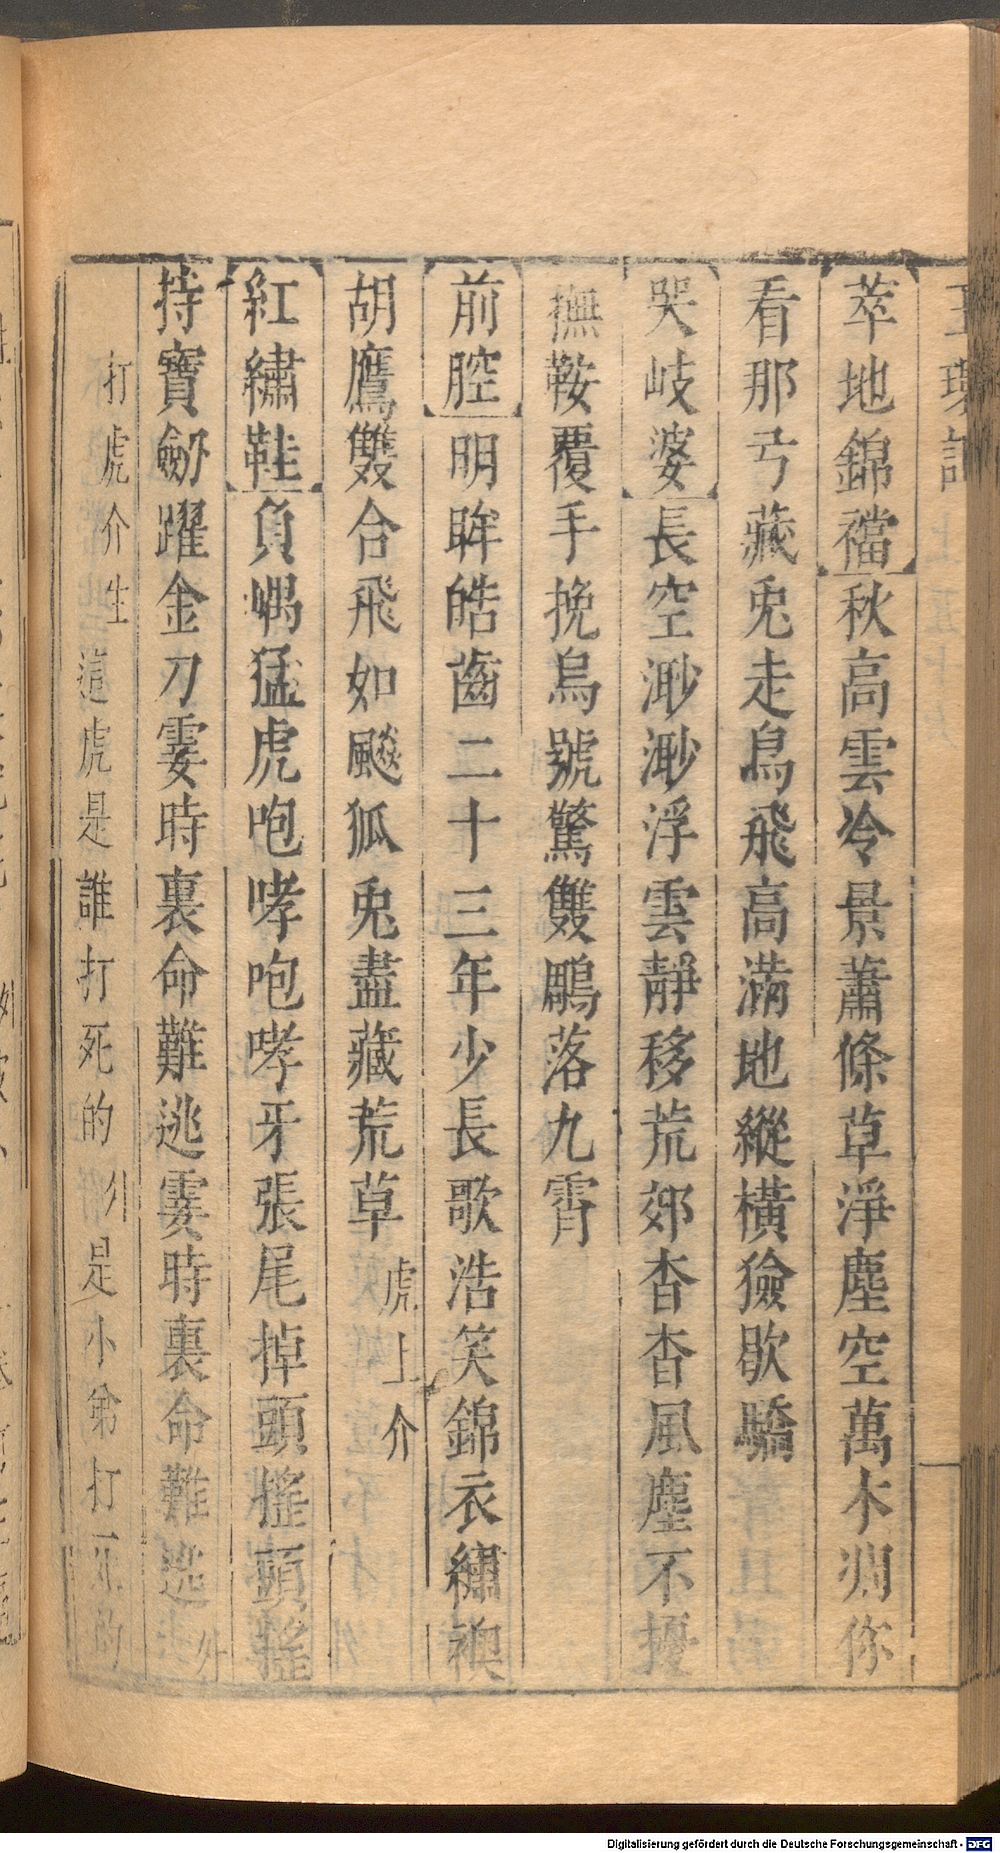 萃地錦襠秋高雲冷景蕭條草淨塵空萬木凋你
看那弓藏兎走鳥飛高滿地縱橫獫歇驕
哭岐婆長空渺渺浮雲靜移荒郊杳杳風塵不擾
撫鞍覆手挽烏號驚雙鵰落九霄
前腔明眸皓齒二十三年少長歌浩笑錦衣繡襖
胡鷹雙合飛如飈狐兎盡藏荒草虎上介
紅繡鞋負嵎猛虎咆哮咆哮牙張尾掉頭搖頭搖
持寶劒躍金刀霎時裏命難逃霎時裏命難逃外
打虎介生這虎是誰打死的外是小弟打死的
Digitalisierung gefördert durch die Deutsche Forschungsgemeinschaft - DFG